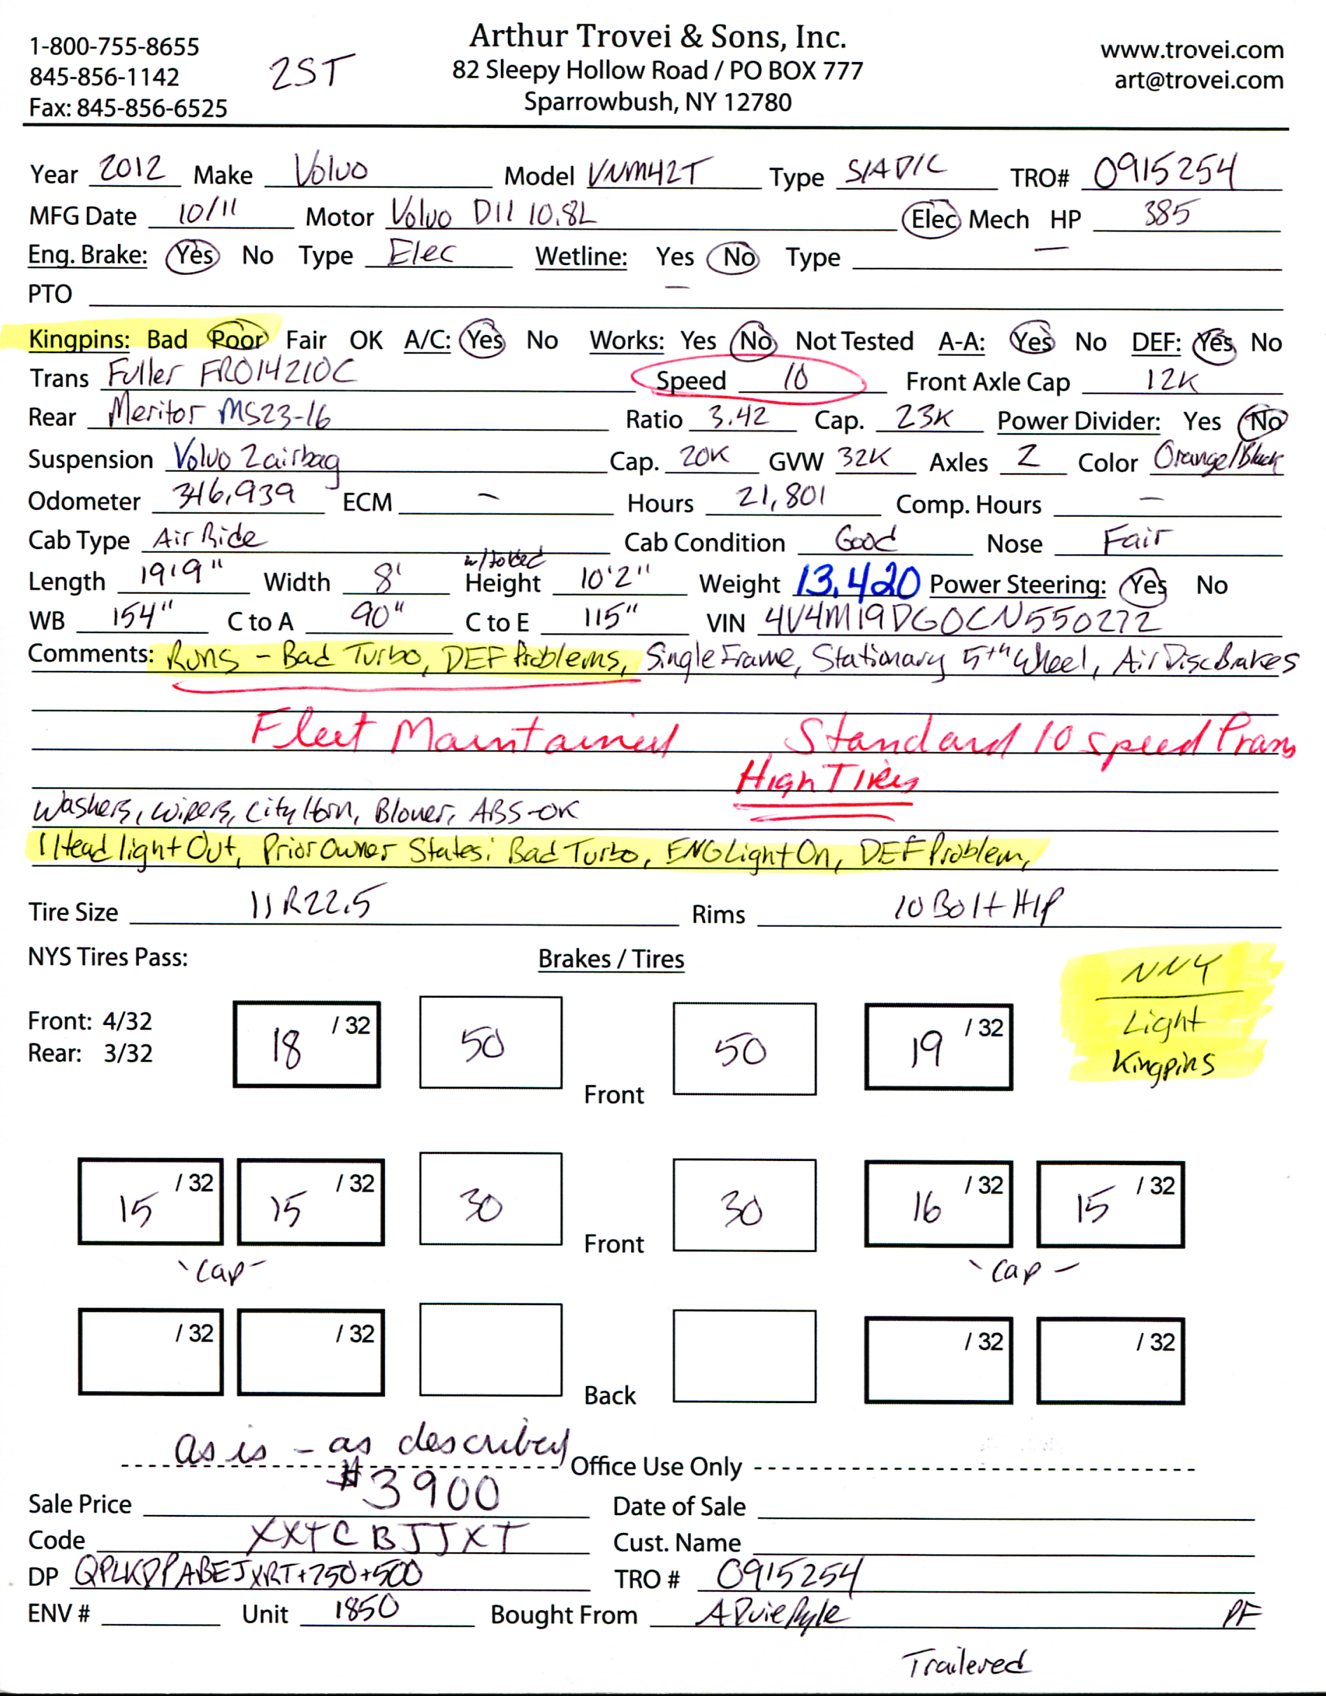 Arthur Trovei & Sons, Inc.
1-800-755-8655 www.trovei.com
845-856-1142 2ST 82 Sleepy Hollow Road / PO BOX 777 art@trovei.com
Fax: 845-856-6525 Sparrowbush, NY 12780
Year 2012 Make Volvo Model VNM42T Type S/A D/C TRO# 0915254
MFG Date 10/11 Motor Volvo D11 10.8L Elec Mech HP 385
Eng. Brake: Yes No Type Elec Wetline: Yes No Type —
PTO —
Kingpins: Bad Poor Fair OK A/C: Yes No Works: Yes No Not Tested A-A: Yes No DEF: Yes No
Trans Fuller FRO14210C Speed 10 Front Axle Cap 12K
Rear Meritor MS23-16 Ratio 3.42 Cap. 23K Power Divider: Yes No
Suspension Volvo 2 airbag Cap. 20K GVW 32K Axles 2 Color Orange/Black
Odometer 346,939 ECM — Hours 21,801 Comp. Hours —
Cab Type Air Ride Cab Condition Good Nose Fair
Length 19'9" Width 8' Height 10'2" Weight 13,420 Power Steering: Yes No
WB 154" C to A 90" C to E 115" VIN 4V4M19DG0CN550272
Comments: Runs - Bad Turbo, DEF Problems, Single Frame, Stationary 5th Wheel, Air Disc Brakes
Fleet Maintained Standard 10 speed Trans
High Tires
Washers, Wipers, City Horn, Blower, ABS-OK
1 Headlight Out, Prior Owner States: Bad Turbo, ENG Light On, DEF Problem,
Tire Size 11R22.5 Rims 10 Bolt H/P
NYS Tires Pass: Brakes / Tires NNY
Front: 4/32 18 /32 50 50 19 /32 Light
Rear: 3/32 Kingpins
Front
15 /32 15 /32 30 30 16 /32 15 /32
Front
-Cap- -Cap-
/32 /32 /32 /32
Back
as is - as described Office Use Only
Sale Price $3900 Date of Sale
Code XXTCBJJXT Cust. Name
DP QPLKDPABEJXRT+750+500 TRO # 0915254
ENV # Unit 1850 Bought From PF
Trailered